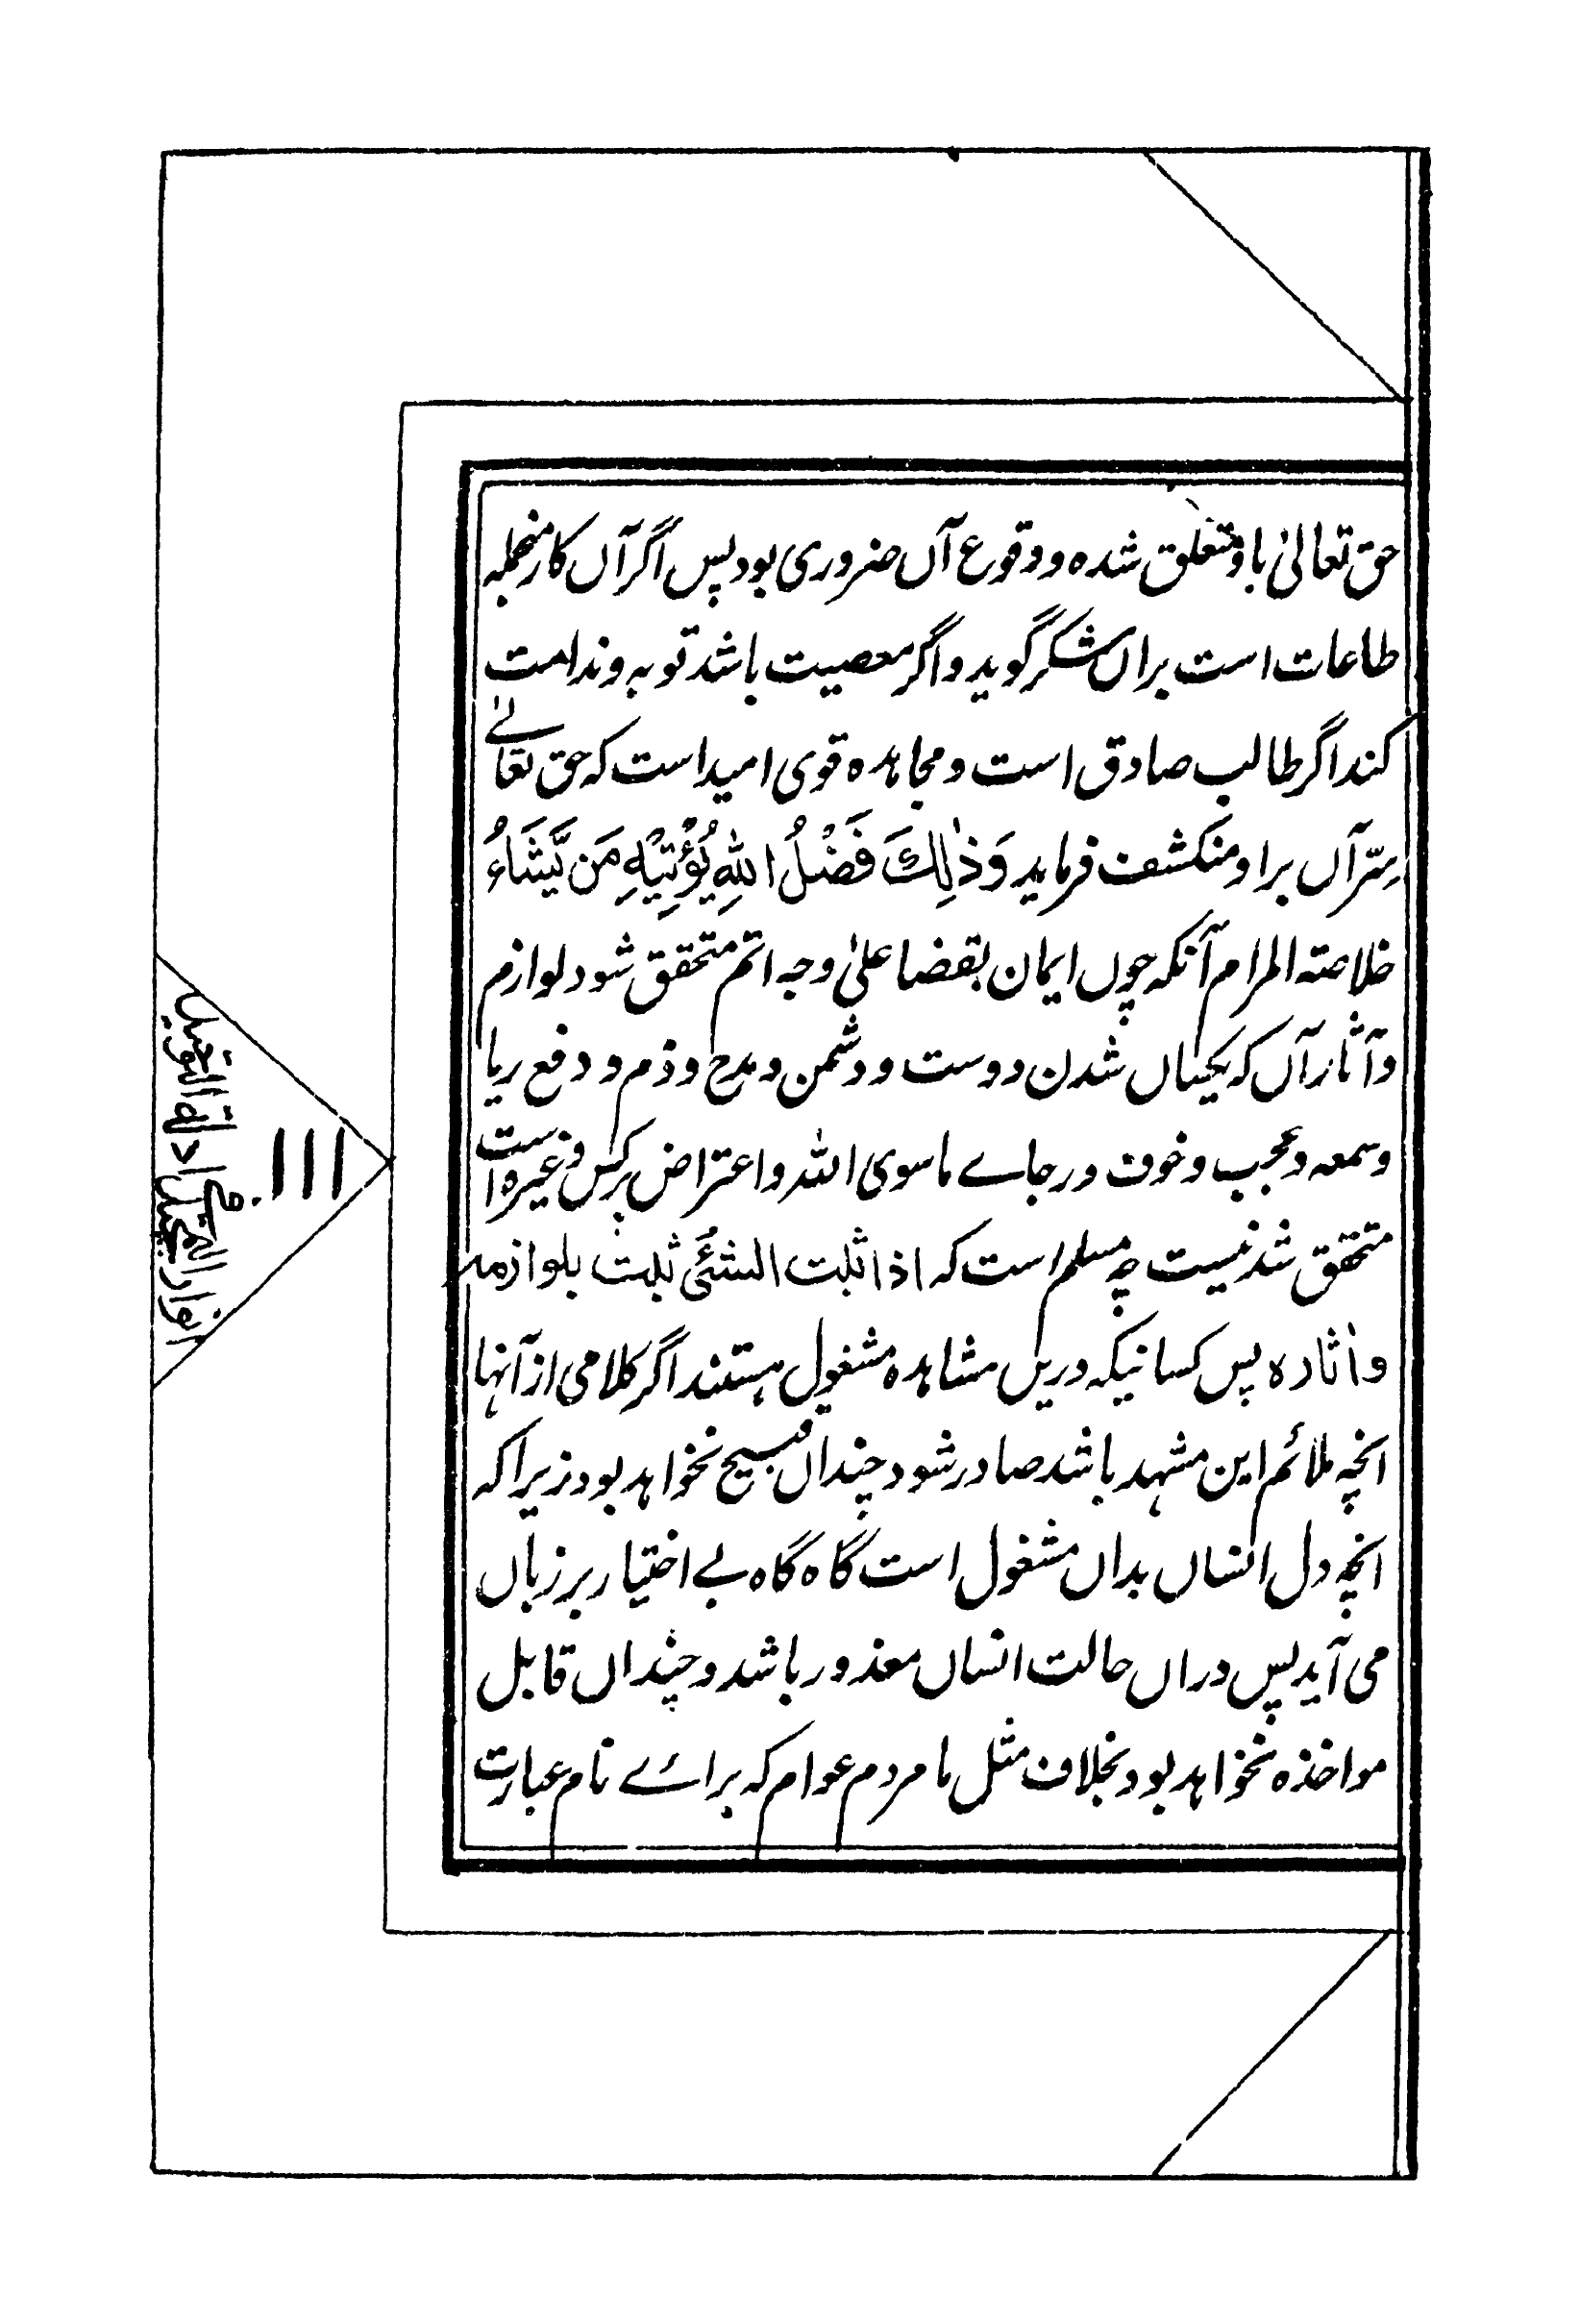 حق تعالیٰ باو متعلق شده و وقوع آں ضروری بود پس اگر آں کار منجمله
طاعات است براں شکر گوید و اگر معصیت باشد توبه و ندامت
کند اگر طالب صادق است و مجاهده قوی امید است که حق تعالےٰ
سِرّ آں برا و منکشف فرماید وَذٰلِكَ فَضْلُ اللهِ يُؤْتِيْهِ مَن يَّشَاءُ
خلاصته المرام آنکه چوں ایمان بقضا علیٰ وجه اتم متحقق شود لوازم
و آثار آں که یکساں شدن دوست و دشمن و مدح و ذم و دفع ریا
و سمعه و عجب و خوف و رجاے ماسوی الله و اعتراض برکس و غیره است
متحقق شدنیست چه مسلم است که اذا ثبت الشئی ثبت بلوازمه
و اٰثاره پس کسانیکه دریں مشاهده مشغول هستند اگر کلامی از آنها
انچه ملائم این مشهد باشد صادر شود چنداں قبیح نخواهد بود زیرا که
انچه دل انساں بداں مشغول است گاه گاه بے اختیار بر زباں
می آید پس دراں حالت انساں معذور باشد و چنداں قابل
مواخذه نخواهد بود بخلاف مثل ما مردم عوام که برائے نام عبارت
۱۱۱